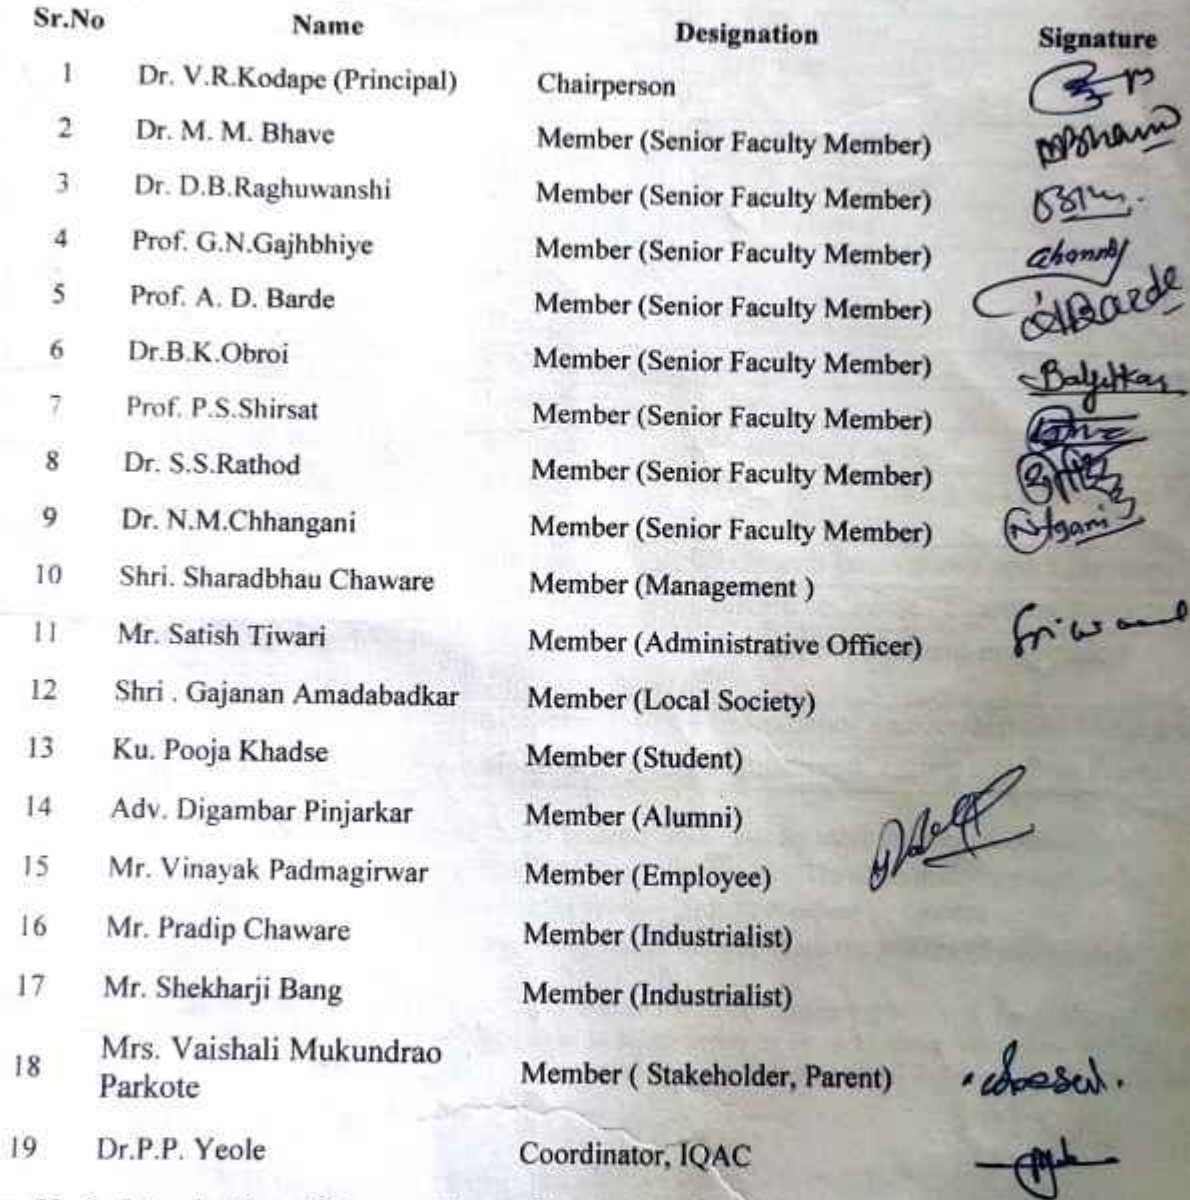 Sr.No Name Designation Signature
1 Dr. V.R.Kodape (Principal) Chairperson
2 Dr. M. M. Bhave Member (Senior Faculty Member)
3 Dr. D.B.Raghuwanshi Member (Senior Faculty Member)
4 Prof. G.N.Gajhbhiye Member (Senior Faculty Member)
5 Prof. A. D. Barde Member (Senior Faculty Member) ABarde
6 Dr.B.K.Obroi Member (Senior Faculty Member)
7 Prof. P.S.Shirsat Member (Senior Faculty Member)
8 Dr. S.S.Rathod Member (Senior Faculty Member)
9 Dr. N.M.Chhangani Member (Senior Faculty Member)
10 Shri. Sharadbhau Chaware Member (Management )
11 Mr. Satish Tiwari Member (Administrative Officer)
12 Shri . Gajanan Amadabadkar Member (Local Society)
13 Ku. Pooja Khadse Member (Student)
14 Adv. Digambar Pinjarkar Member (Alumni)
15 Mr. Vinayak Padmagirwar Member (Employee)
16 Mr. Pradip Chaware Member (Industrialist)
17 Mr. Shekharji Bang Member (Industrialist)
18 Mrs. Vaishali Mukundrao
Parkote Member ( Stakeholder, Parent)
19 Dr.P.P. Yeole Coordinator, IQAC